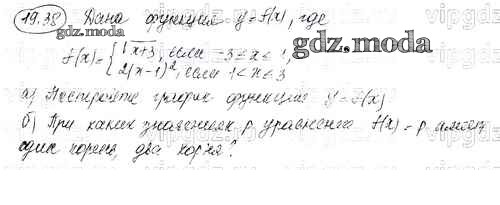 19.38 Дана функция y=f(x), где
gdz.moda
f(x)={ √x+3, если -3≤x≤1,
2(x-1)², если 1<x≤3
а) Постройте график функции y=f(x)
б) При каких значениях p уравнение f(x)=p имеет
один корень, два корня?